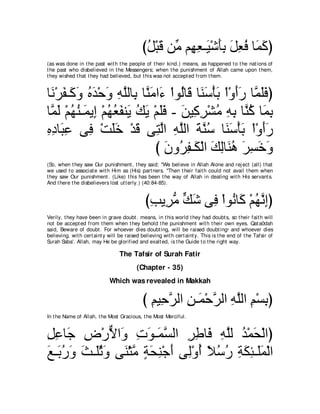 (كَمَا فُعِلَ بِأَشْيَـعِهِم مِّن قَبْلُ)
(as was done in the past with the people of their kind.) means, as happened to the nations of
the past who disbelieved in the Messengers; when the punishment of Allah came upon them,
they wished that they had believed, but this was not accepted from them.
(فَلَمَّا رَأَوْاْ بَأْسَنَا قَالُواْ ءَامَنَّا بِاللَّهِ وَحْدَهُ وَكَـفَرْنَا
بِمَا كُنَّا بِهِ مُشْرِكِينَ - فَلَمْ يَكُ يَنفَعُهُمْ إِيمَـنُهُمْ لَمَّا
رَأَوْاْ بَأْسَنَا سُنَّةَ اللَّهِ الَّتِى قَدْ خَلَتْ فِى عِبَادِهِ
وَخَسِرَ هُنَالِكَ الْكَـفِرُونَ )
(So, when they saw Our punishment, they said: "We believe in Allah Alone and reject (all) that
we used to associate with Him as (His) partners. "Then their faith could not avail them when
they saw Our punishment. (Like) this has been the way of Allah in dealing with His servants.
And there the disbelievers lost utterly.) (40:84-85).
(إِنَّهُمْ كَانُواْ فِى شَكٍّ مُّرِيبٍ)
Verily, they have been in grave doubt. means, in this world they had doubts, so their faith will
not be accepted from them when they behold the punishment with their own eyes. Qatadah
said, Beware of doubt. For whoever dies doubting, will be raised doubting; and whoever dies
believing, with certainty will be raised believing with certainty. This is the end of the Tafsir of
Surah Saba'. Allah, may He be glorified and exalted, is the Guide to the right way.
The Tafsir of Surah Fatir
(Chapter - 35)
Which was revealed in Makkah
(بِسْمِ اللَّهِ الرَّحْمَـنِ الرَّحِيمِ )
In the Name of Allah, the Most Gracious, the Most Merciful.
(الْحَمْدُ للَّهِ فَاطِرِ السَّمَـوَتِ وَالاٌّرْضِ جَاعِلِ
الْمَلَـئِكَةِ رُسُلاً أُوْلِى أَجْنِحَةٍ مَّثْنَى وَثُلَـثَ وَرُبَـعَ